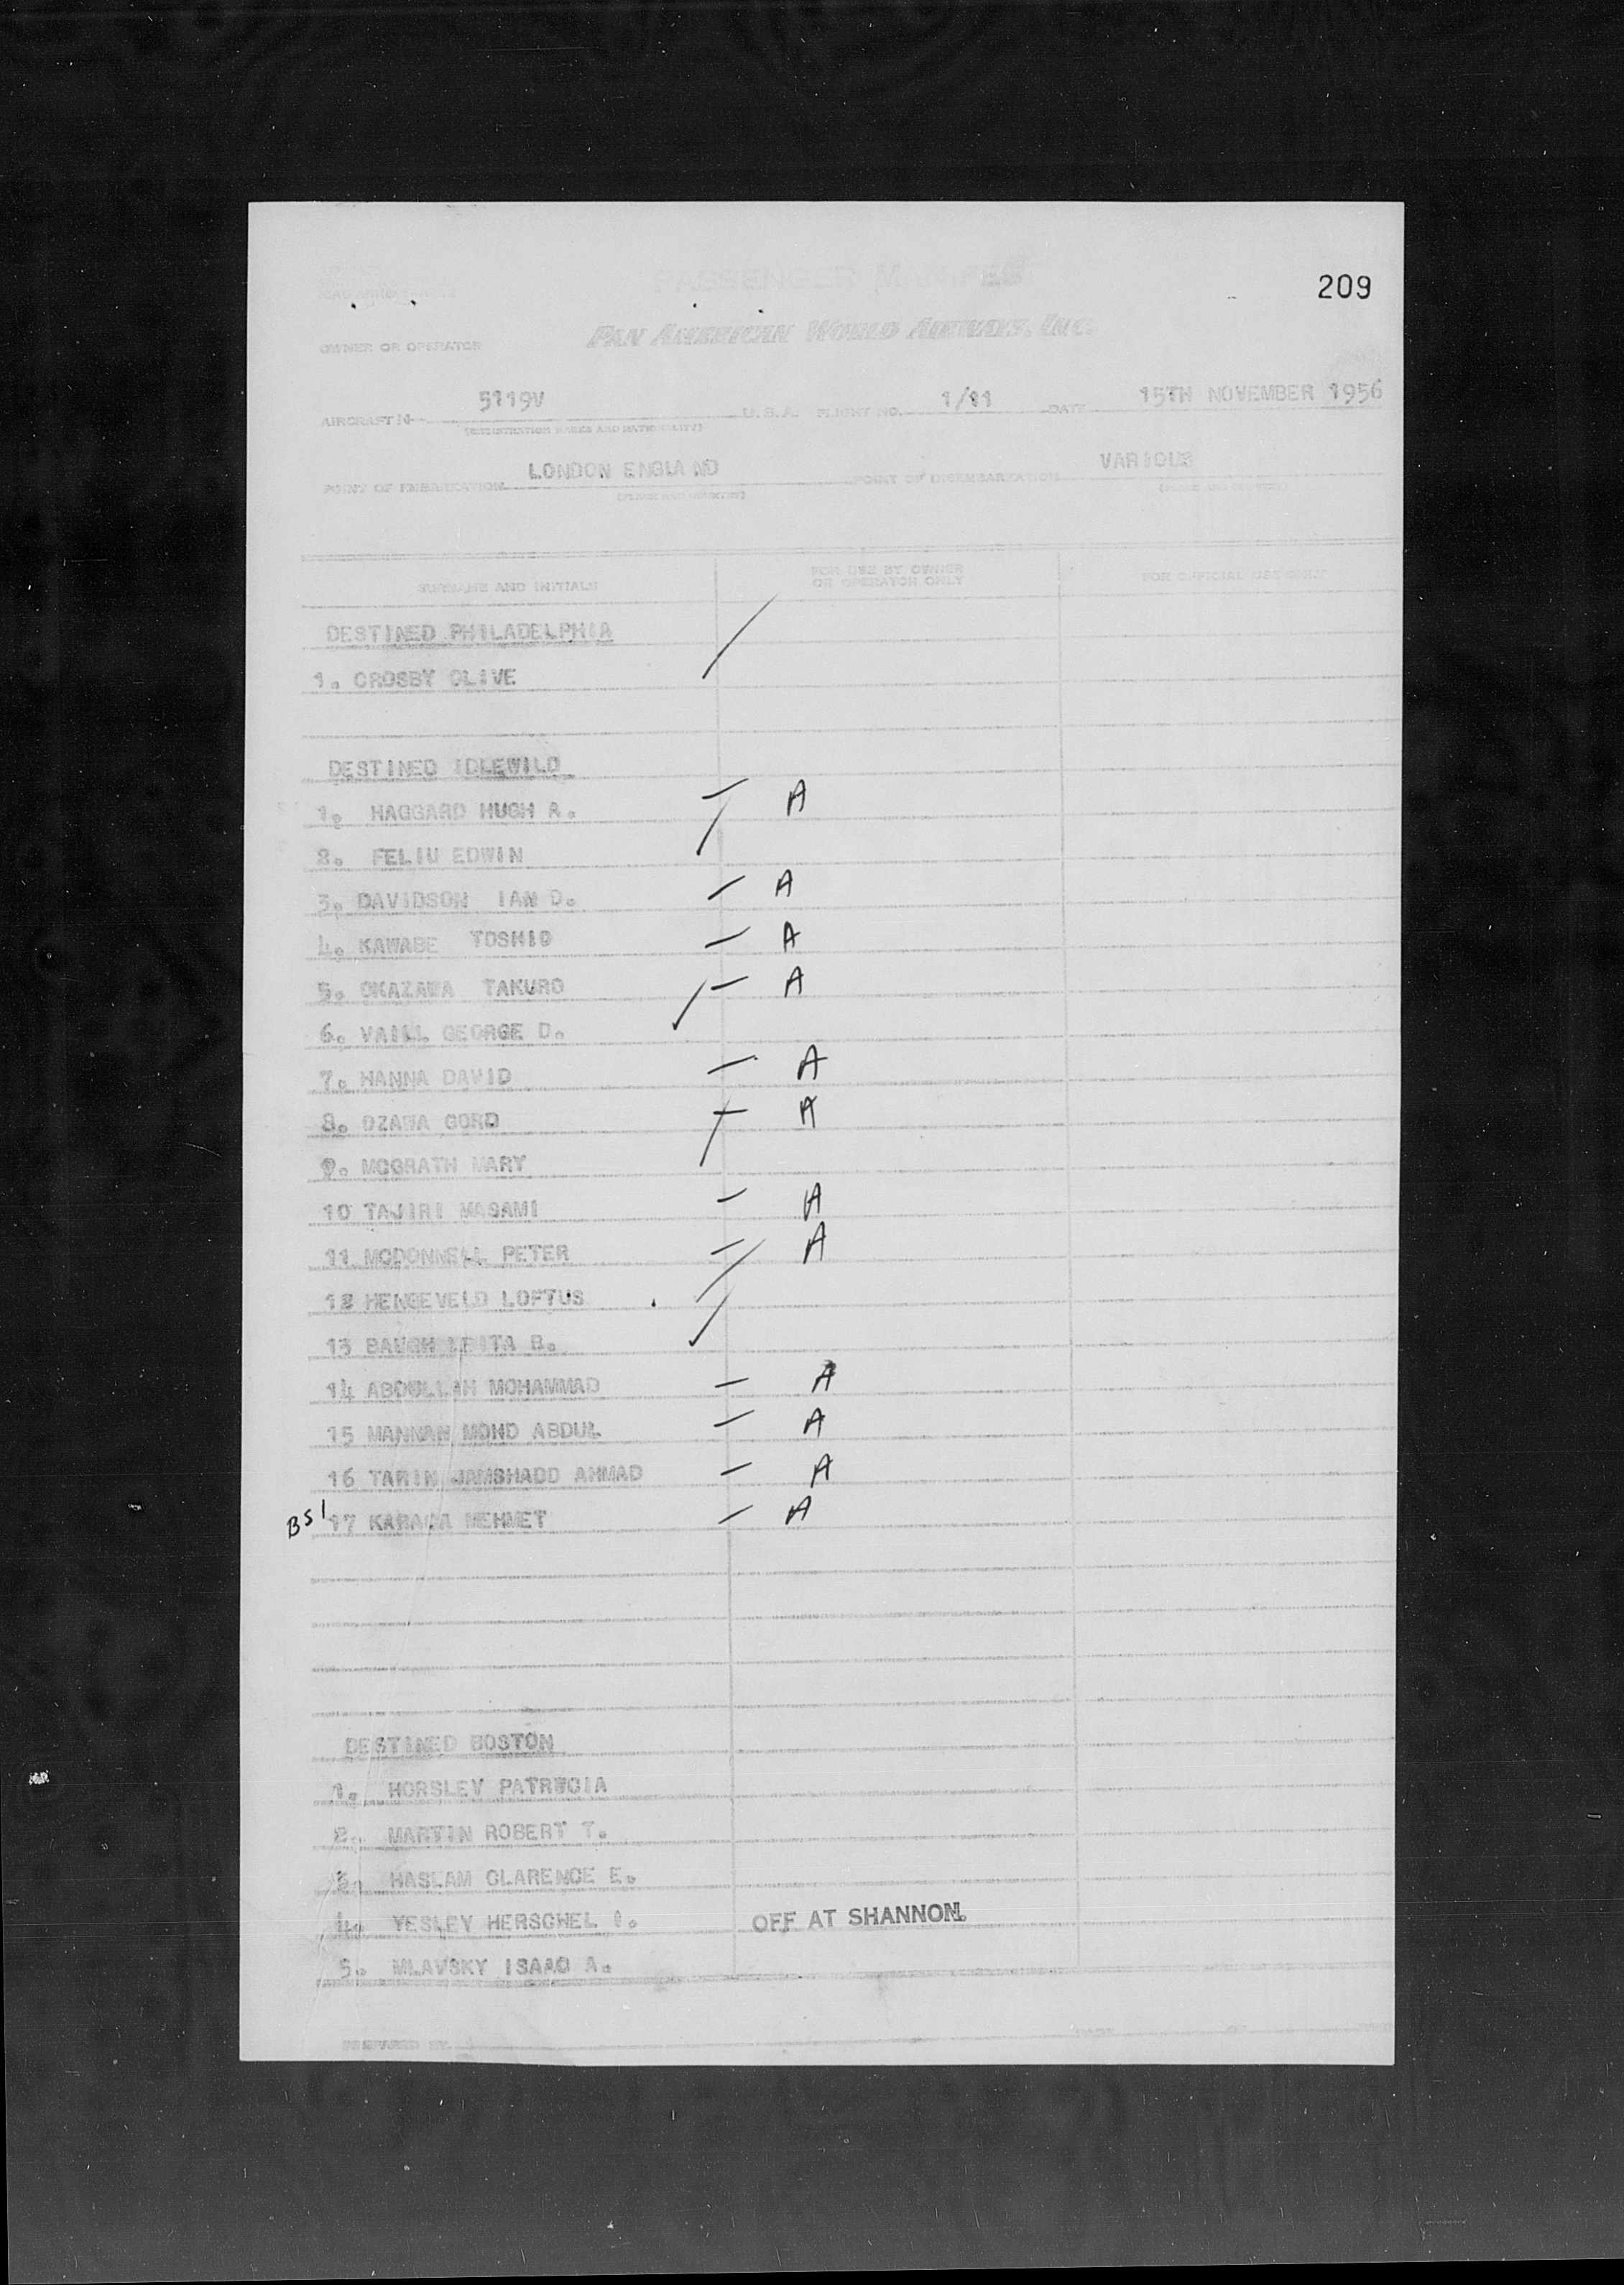 209
PASSENGER MANIFEST
PAN AMERICAN WORLD AIRWAYS, INC.
OWNER OR OPERATOR
AIRCRAFT N 5119V U.S.A. FLIGHT NO. 1/11 DATE 15TH NOVEMBER 1956
(REGISTRATION MARKS AND NATIONALITY)
POINT OF EMBARKATION LONDON ENGLAND POINT OF DISEMBARKATION VARIOUS
(PLACE AND COUNTRY) (PLACE AND COUNTRY)
SURNAME AND INITIALS FOR USE BY OWNER OR OPERATOR ONLY FOR OFFICIAL USE ONLY
DESTINED PHILADELPHIA
1. CROSBY OLIVE /
DESTINED IDLEWILD
1. HAGGARD HUGH A. — A
2. FELIU EDWIN /
3. DAVIDSON IAN D. — A
4. KAWABE TOSHIO — A
5. OKAZAWA TAKURO — A
6. VAILL GEORGE D. /
7. HANNA DAVID — A
8. OZAWA GORO — A
9. MCGRATH MARY /
10 TAJIRI MASAMI — A
11 MCDONNELL PETER — A
12 HENGEVELD LOFTUS /
13 BAUGH B. /
14 ABDULLAH MOHAMMAD — A
15 MANNAN MOHD ABDUL — A
16 TARIN JAMSHADD AHMAD — A
BS1 17 KARACA MEHMET — A
DESTINED BOSTON
1. HORSLEY PATRWCIA
2. MARTIN ROBERT T.
3. HASLAM CLARENCE E.
4. YESLEY HERSCHEL I. OFF AT SHANNON.
5. MLAVSKY ISAAC A.
PREPARED BY PAGE OF